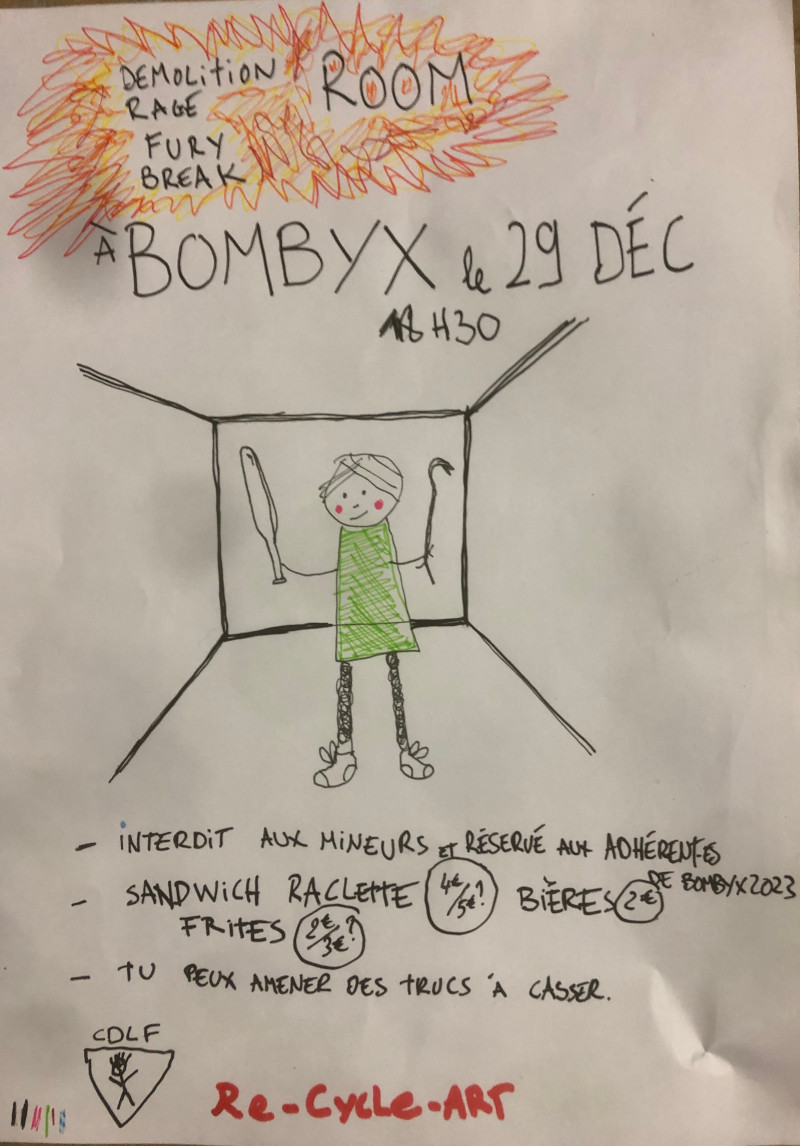 DEMOLITION
RAGE
FURY
BREAK
ROOM
À BOMBYX le 29 DÉC
18H30
- INTERDIT AUX MINEURS ET RÉSERVÉ AUX ADHÉRENT.ES
DE BOMBYX 2023
- SANDWICH RACLETTE 4€/5€? BIÈRES 2€
FRITES 2€/3€?
- TU PEUX AMENER DES TRUCS À CASSER.
CDLF
Re-Cycle-ART